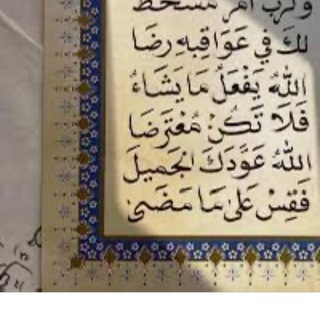 ولرب أمر مسخط
لك في عواقبه رضا
اللهُ يَفْعَلُ مَا يَشَاءُ
فَلَا تَكُنْ مُعْتَرِضَا
اللهُ عَوَّدَكَ الجَمِيلَ
فَقِسْ عَلَى مَا مَضَى